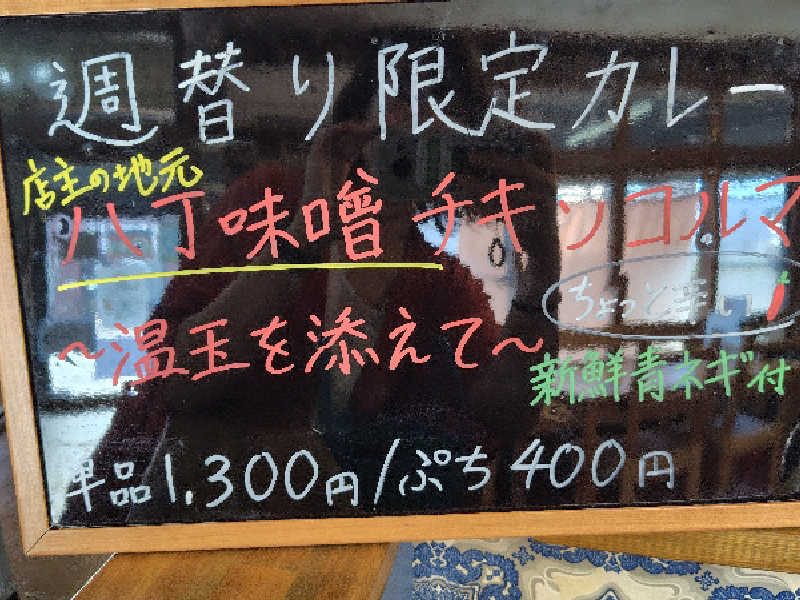 週替り限定カレー
店主の地元
八丁味噌チキンコルマ
ちょっと辛い
～温玉を添えて～
新鮮青ネギ付
単品1,300円/ぷち400円